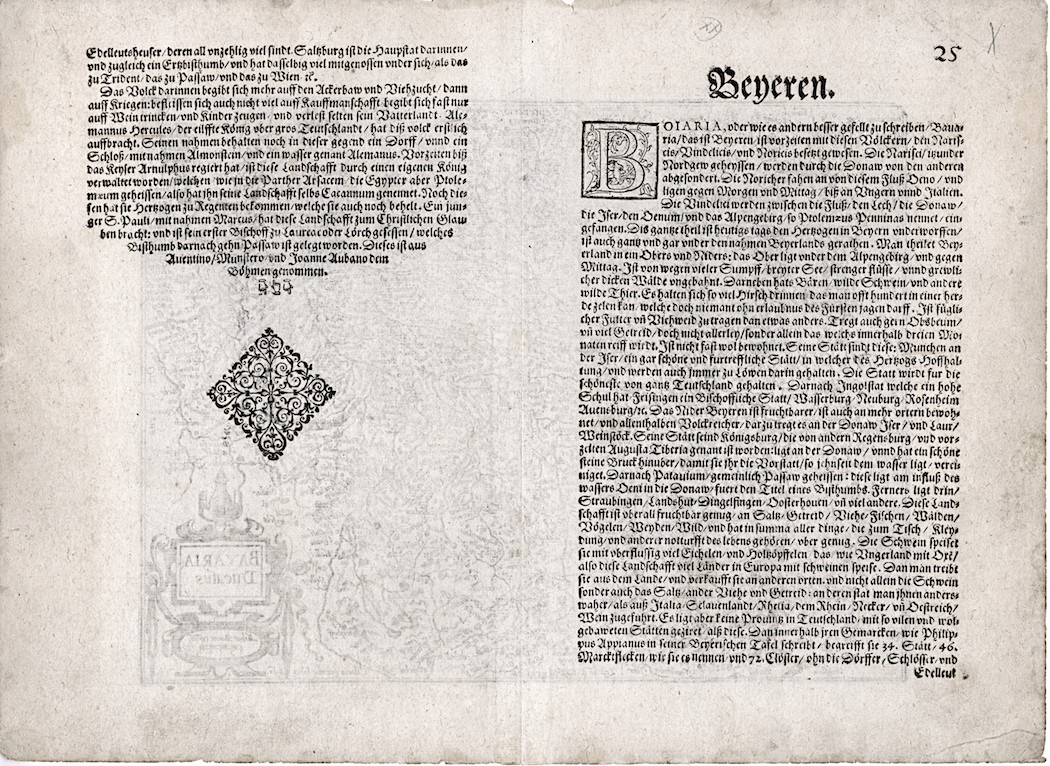 25
Beyeren.
BOIARIA, oder wie es andern besser gefellt zu schreiben/ Baua-
ria/ das ist Beyeren ist vorzeiten mit diesen Völckern/ den Naris-
cis/ Vindelicis/ vnd Noricis besetzt gewesen. Die Narisci/ itzunder
Nordgew geheyssen/ werden durch die Donaw von den anderen
abgesondert. Die Noricher fahen an von diesem Fluß Oeno/ vnd
ligen gegen Morgen vnd Mittag/ biß an Vngern vnnd Italien.
Die Vindelici werden zwischen die Fluß/ den Lech/ die Donaw/
die Iser/ den Oenum/ vnd das Alpengebirg/ so Ptolemæus Penninas nennet/ ein-
gefangen. Dis gantz theil ist heutigs tags den Hertzogen in Beyern vnderworffen/
ist auch gantz vnd gar vnder den nahmen Beyerlands gerathen. Man theilet Bey-
erland in ein Obers vnd Niders: das Ober ligt vnder dem Alpengebirg/ vnd gegen
Mittag. Ist von wegen vieler Sumpff/ breyter See/ strenger flüsse/ vnnd grewli-
cher dicken Wälde vngebahnt. Darneben hats Bären/ wilde Schwein/ vnd andere
wilde Thier. Es halten sich so viel Hirsch drinnen/ das man offt hundert in einer her-
de zelen kan/ welche doch niemant ohn erlaubnus des Fürsten jagen darff. Ist fügli-
cher Futter vñ Viehweid zu tragen dan etwas anders. Tregt auch gern Obsbeum/
vñ viel Getreid/ doch nicht allerley/ sonder allein das welchs innerhalb dreien Mo-
naten reiff wirdt. Ist nicht fast wol bewohnet. Seine Stätt sindt diese: Munchen an
der Iser/ ein gar schöne vnd furtreffliche Stätt/ in welcher des Hertzogs Hoffhal-
tung/ vnd werden auch jmmer zu Löwen darin gehalten. Die Statt wirdt fur die
schöneste von gantz Teutschland gehalten. Darnach Ingolstat welche ein hohe
Schul hat. Freisingen ein Bischoffliche Statt/ Wasserburg/ Neuburg/ Rosenheim
Auensburg/ ꝛc. Das Nider Beyeren ist fruchtbarer/ ist auch an mehr ortern bewoh-
net/ vnd allenthalben Volckreicher/ dar zu tregt es an der Donaw Iser/ vnd Laur/
Weinstöck. Seine Stätt seind Königsburg/ die von andern Regensburg/ vnd vor-
zeiten Augusta Tiberia genant ist worden: ligt an der Donaw/ vnnd hat ein schöne
steine Bruck hinuber/ damit sie ihr die Vorstatt/ so jehnseit dem wasser ligt/ verei-
niget. Darnach Patauium/ gemeinlich Passaw geheissen: diese ligt am influß des
wassers Oeni in die Donaw/ fuert den Titel eines Bisthumbs. Ferners ligt drin/
Straubingen/ Landshut/ Dingelfingen/ Oosterhouen/ vñ viel andere. Diese Land-
schafft ist vberall fruchtbar genug/ an Saltz/ Getreid/ Viehe/ Fischen/ Wälden/
Vögelen/ Weyden/ Wild/ vnd hat in summa aller dinge/ die zum Tisch/ Kley-
dung/ vnd anderer notturfft des lebens gehören/ vber genug. Die Schwein speiset
sie mit vberflussig viel Eichelen/ vnd Holtzöpffelen/ das/ wie Vngerland mit Oxē/
also diese Landschafft viel Länder in Europa mit schweinen speise. Dan man treibt
sie aus dem Lande/ vnd verkaufft sie an anderen orten. vnd nicht allein die Schwein
sonder auch das Saltz/ ander Viehe vnd Getreid: an deren stat man jhnen anders-
waher/ als auß Italia/ Sclauenlandt/ Rhetia/ dem Rhein/ Necker/ vñ Oestreich/
Wein zugefuhrt. Es ligt aber keine Prouintz in Teutschland/ mit so vilen vnd wol-
gebaweten Stätten gezieret/ alß diese. Dan innerhalb jren Gemarcken/ wie Philip-
pus Appianus in seiner Beyerischen Tafel schreibt/ begreifft sie 34. Stätt/ 46.
Marcktflecken/ wie sie es nennen/ vnd 72. Clöster/ ohn die Dörffer/ Schlösser/ vnd
Edelleut
Edelleutsheuser/ deren all vnzehlig viel sindt. Saltzburg ist die Haupstat darinnen/
vnd zugleich ein Ertzbisthumb/ vnd hat dasselbig viel mitgenossen vnder sich/ als das
zu Trident/ das zu Passaw/ vnd das zu Wien/ ꝛc.
Das Volck darinnen begibt sich mehr auff den Ackerbaw vnd Viehzucht/ dann
auff Kriegen: befleissen sich auch nicht viel auff Kauffmanschafft/ begibt sich fast nur
auff Wein trincken/ vnd Kinder zeugen/ vnd verlest selten sein Vatterlandt. Ale-
mannus Hercules/ der eilffte König vber gros Teutschlandt/ hat diß volck erstlich
auffbracht. Seinen nahmen behalten noch in dieser gegend ein Dorff/ vnnd ein
Schloß/ mit nahmen Almonstein/ vnd ein wasser genant Alemanus. Vorzeiten biß
das Keyser Arnulphus regiert hat/ ist diese Landschafft durch einen eigenen König
verwaltet worden/ welchen/ wie sie die Parther Arsacem/ die Egypter aber Ptole-
mæum geheissen/ also hat ihn seine Landschafft selbs Cacannum genennet. Nach die-
sen hat sie Hertzogen zu Regenten bekommen/ welche sie auch noch behelt. Ein jun-
ger S. Pauli/ mit nahmen Marcus/ hat diese Landschafft zum Christlichen Glau-
ben bracht: vnd ist sein erster Bischoff zu Laureac oder Lörch gesessen/ welches
Bisthumb darnach gehn Passaw ist gelegt worden. Dieses ist aus
Auentino/ Munstero vnd Joanne Aubano dem
Böhmen genommen.
BAVARIA
Ducatus